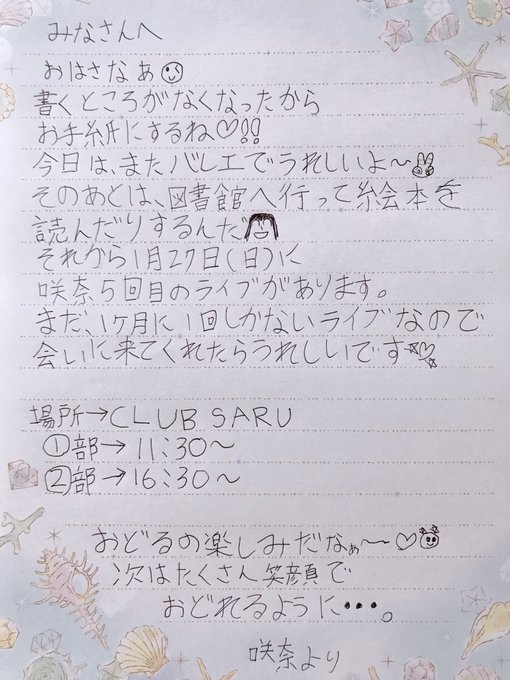 みなさんへ
おはさなぁ
書くところがなくなったから
お手紙にするね♡!!
今日は、またバレエでうれしいよ〜
そのあとは、図書館へ行って絵本を
読んだりするんだ
それから1月27日(日)に
咲奈5回目のライブがあります。
まだ、1ヶ月に1回しかないライブなので
会いに来てくれたらうれしいです
場所→CLUB SARU
①部→11:30〜
②部→16:30〜
おどるの楽しみだなぁ〜♡
次はたくさん笑顔で
おどれるように・・・。
咲奈より